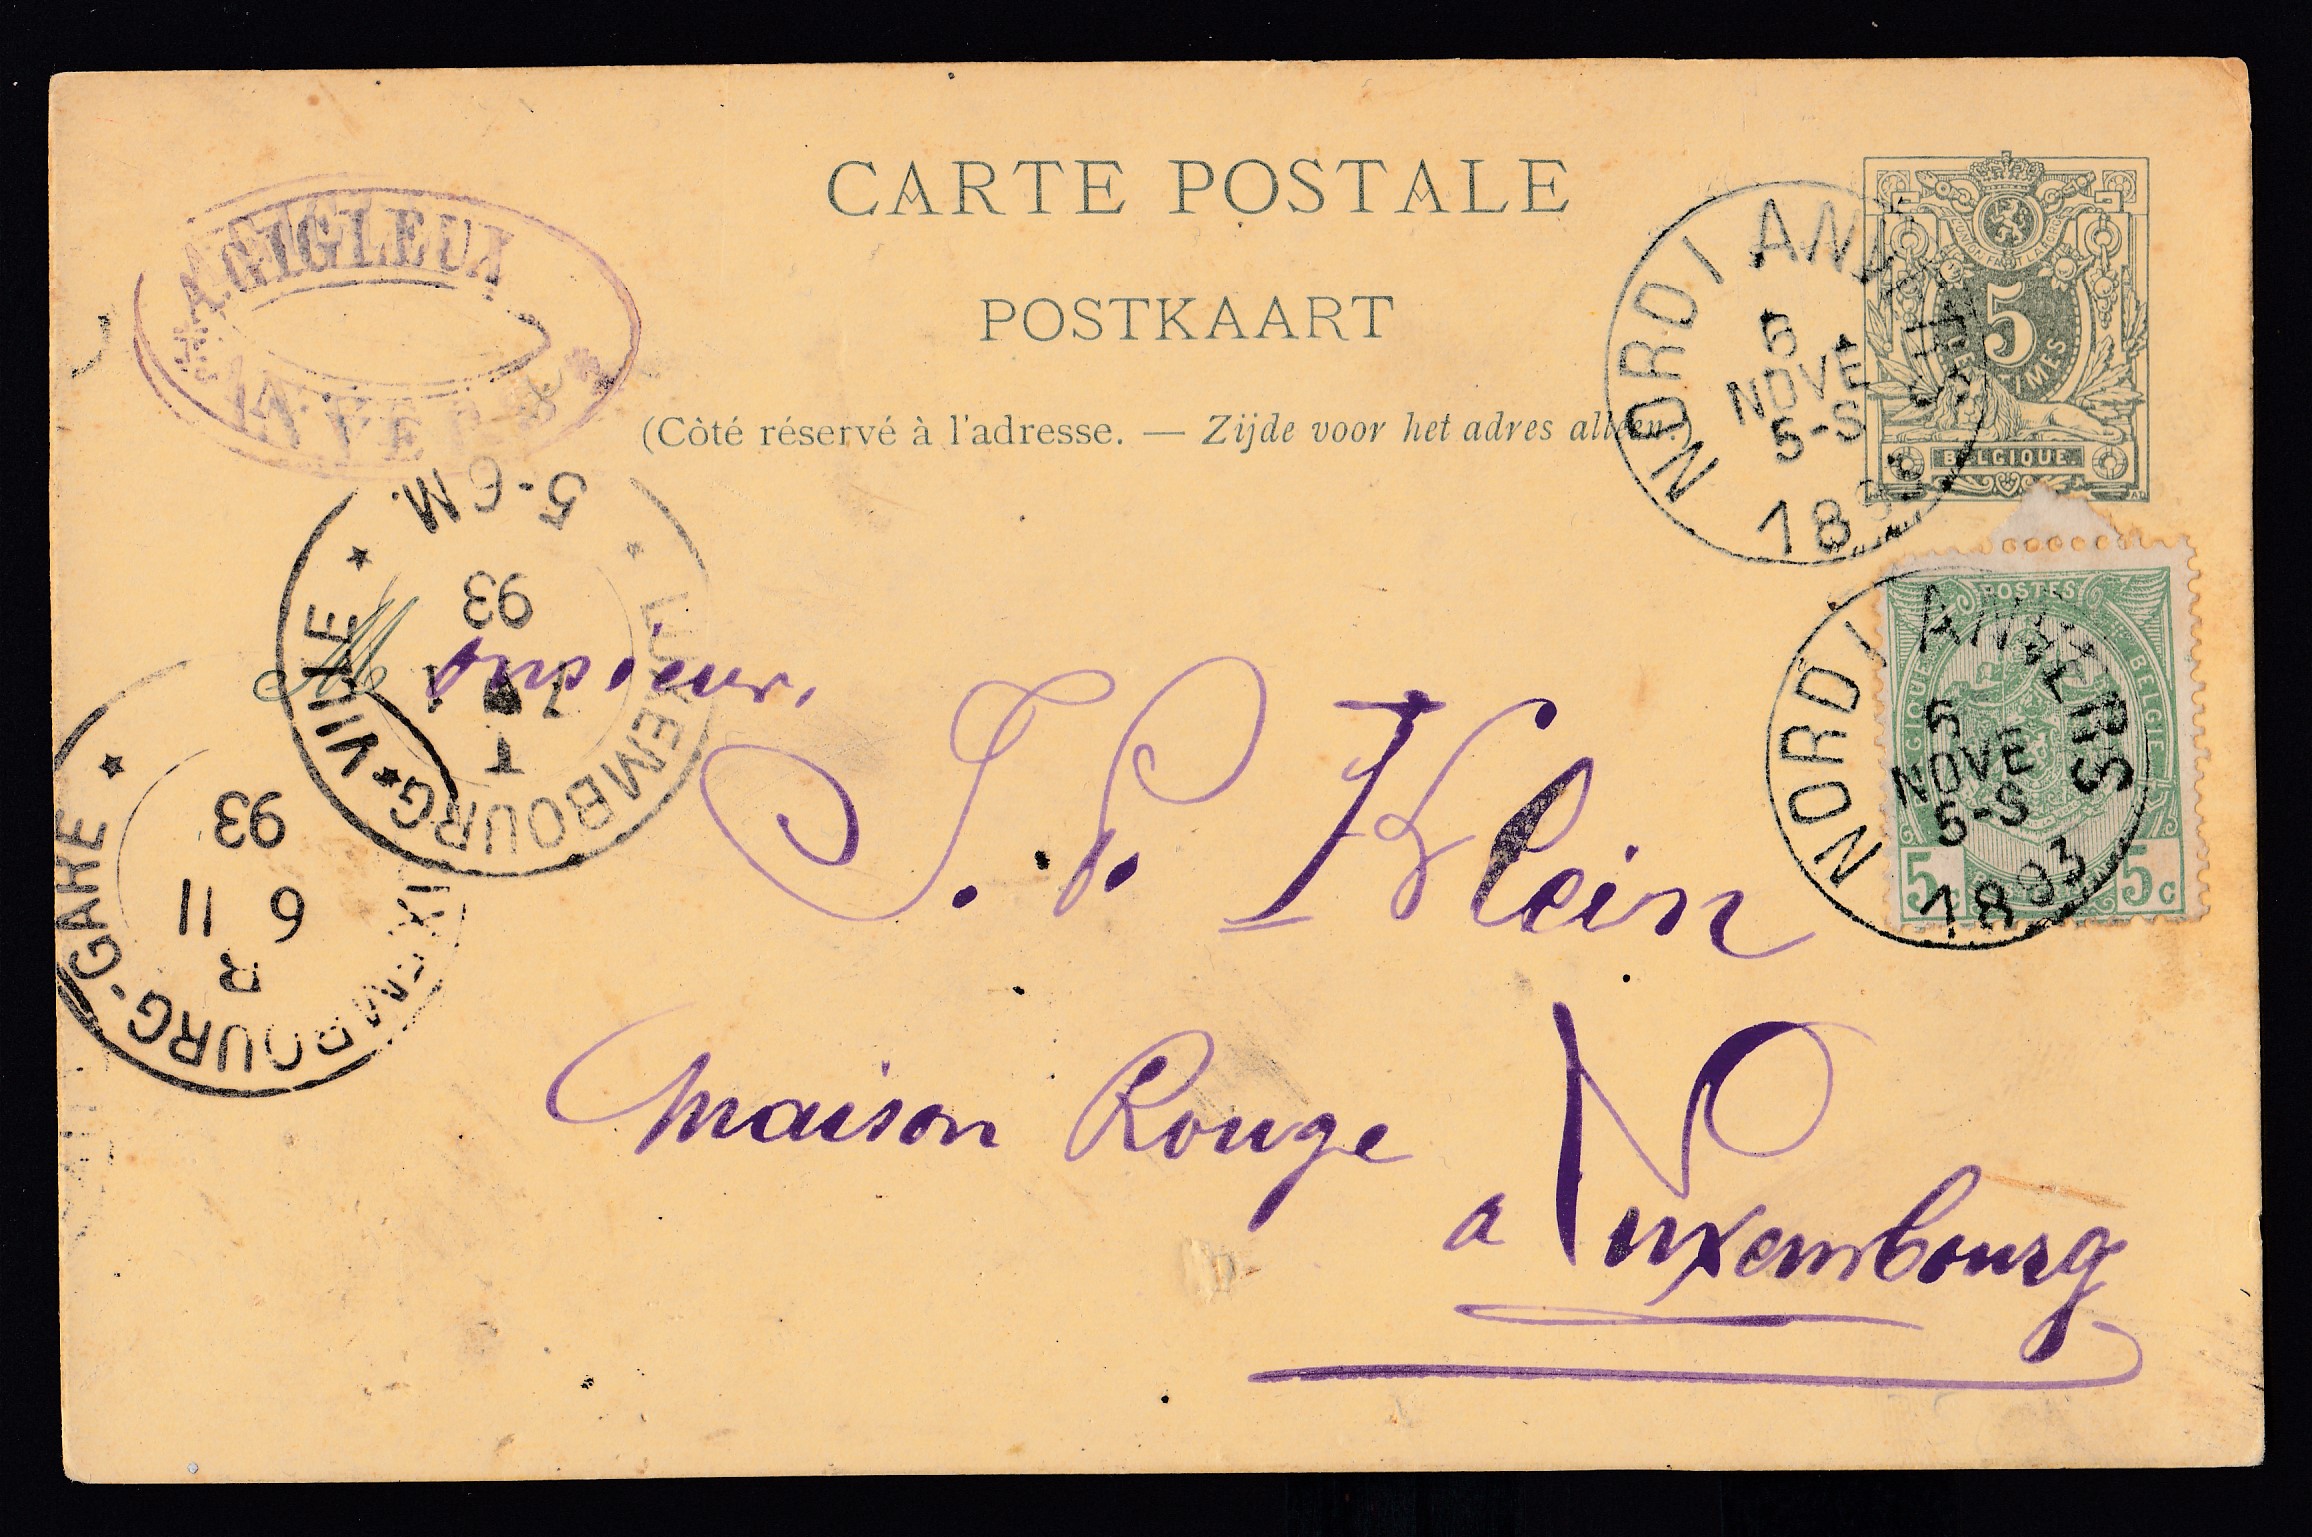 CARTE POSTALE
POSTKAART
(Côté réservé à l'adresse. — Zijde voor het adres alleen.)
A. GIGLEUX
ANVERS
NORD / ANVERS
NOVE
5-S
1893
5
CENTIMES
BELGIQUE.
POSTES
BELGIQUE BELGIË
5c 5c
NORD / ANVERS
NOVE
5-S
1893
LUXEMBOURG * VILLE *
5-6 M.
93
7 11
T
LUXEMBOURG-GARE *
93
6 11
Monsieur,
J. P. Klein
Maison Rouge
a Luxembourg